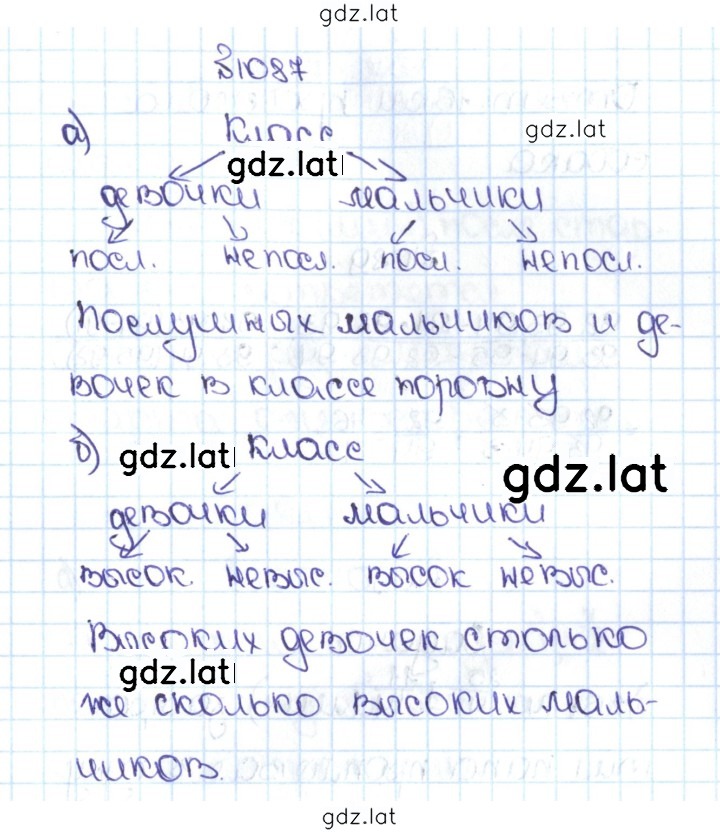 gdz.lat
№1087
а) Класс gdz.lat
gdz.lat
девочки мальчики
посл. непосл. посл. непосл.
Послушных мальчиков и де-
вочек в классе поровну
б) gdz.lat класс
gdz.lat
девочки мальчики
высок. невыс. высок невыс.
Высоких девочек столько
gdz.lat
же сколько высоких маль-
чиков.
gdz.lat